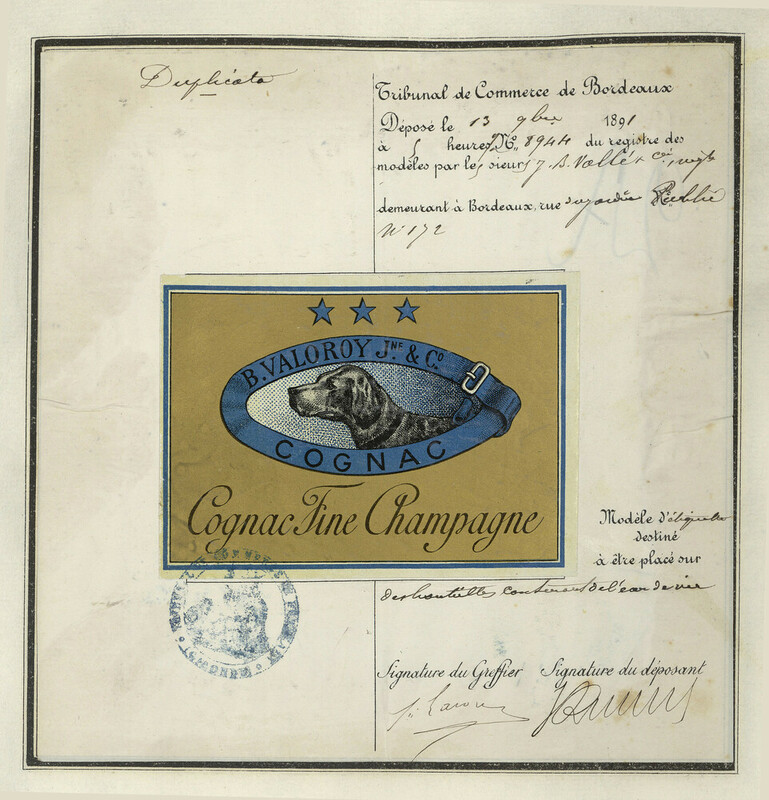 Duplicata
Tribunal de Commerce de Bordeaux
Déposé le 13 9bre 1891
à heures No. 8944 du registre des
modèles par les sieurs J. B.
demeurant à Bordeaux, rue du jardin Public
No 172
B. VALOROY JNE & Co
COGNAC
Cognac Fine Champagne
Modèle d'étiquette
destiné
à être placé sur
des bouteilles contenant de l'eau de vie
Signature du Greffier Signature du déposant